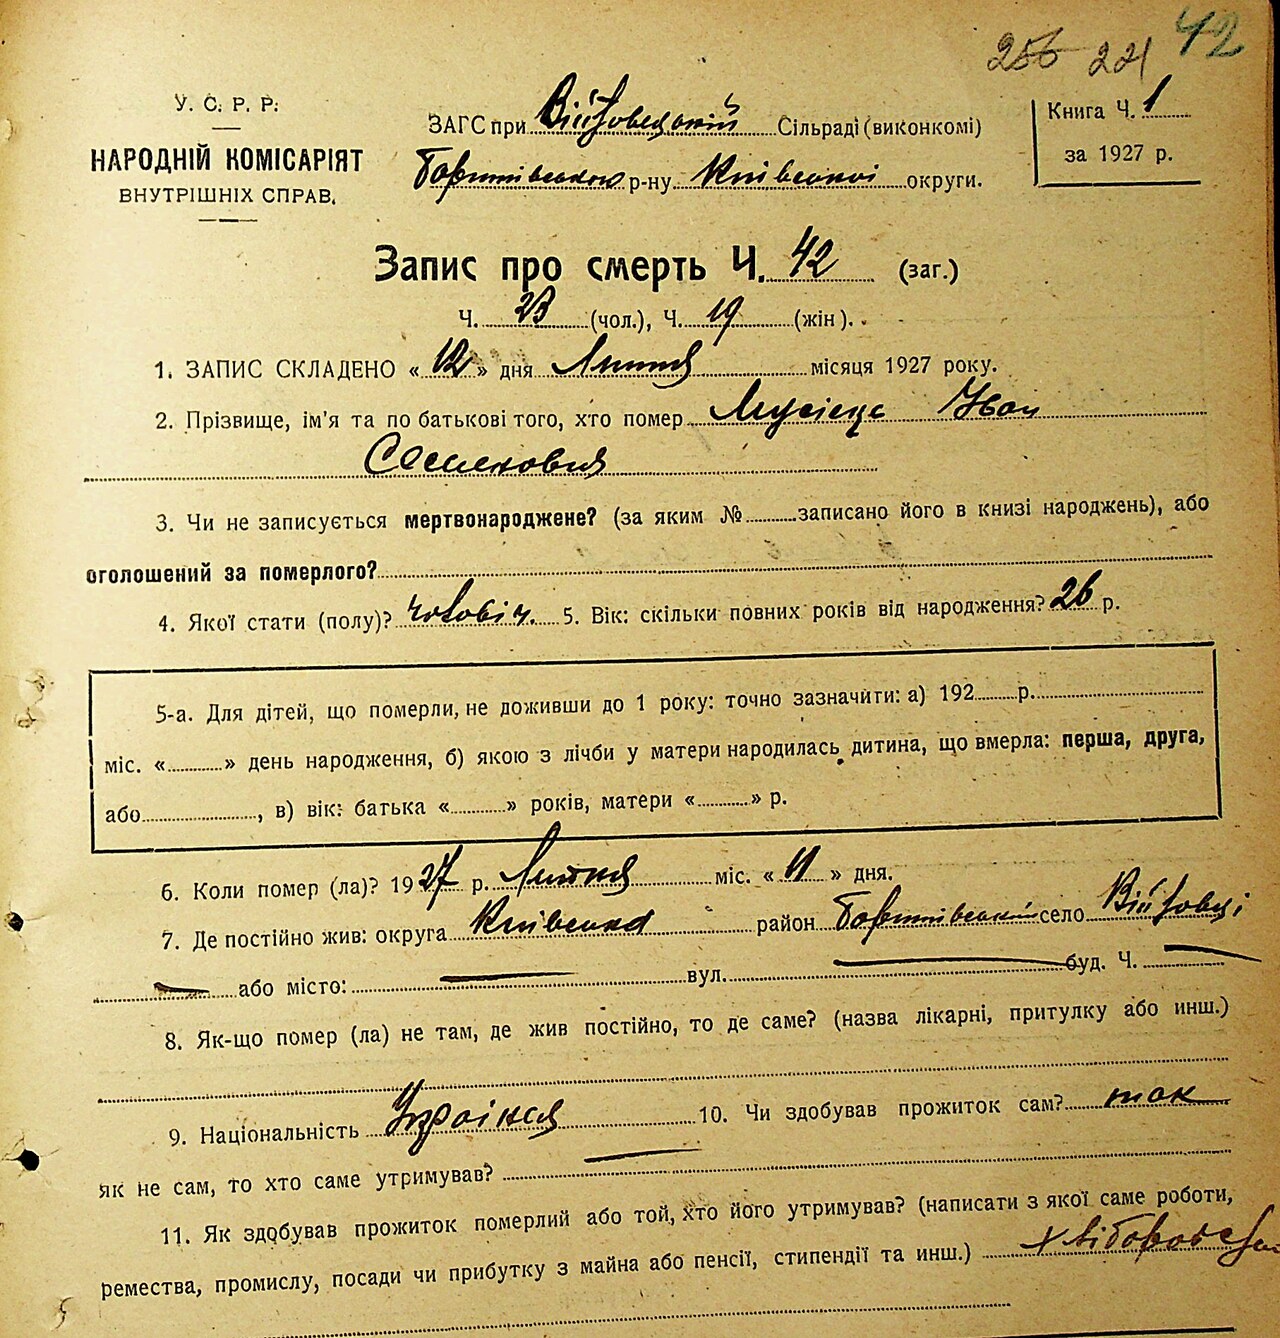 256 221 42
У. С. Р. Р.
НАРОДНІЙ КОМІСАРІЯТ
ВНУТРІШНІХ СПРАВ.
ЗАГС при Війтовецькій Сільраді (виконкомі)
р-ну Київської округи.
Книга Ч. 1
за 1927 р.
Запис про смерть Ч. 42 (заг.)
Ч. 23 (чол.), Ч. 19 (жін).
1. ЗАПИС СКЛАДЕНО « 12 » дня Липня місяця 1927 року.
2. Прізвище, ім'я та по батькові того, хто помер Мусієць Іван
Семенович
3. Чи не записується мертвонароджене? (за яким № записано його в книзі народжень), або
оголошений за померлого?
4. Якої стати (полу)? чоловіч. 5. Вік: скільки повних років від народження? 26 р.
5-а. Для дітей, що померли, не доживши до 1 року: точно зазначити: а) 192 р.
міс. « » день народження, б) якою з лічби у матери народилась дитина, що вмерла: перша, друга,
або , в) вік: батька « » років, матери « » р.
6. Коли помер (ла)? 1927 р. Липня міс. « 11 » дня.
7. Де постійно жив: округа Київська район село Війтовці
або місто: вул. буд. Ч.
8. Як-що помер (ла) не там, де жив постійно, то де саме? (назва лікарні, притулку або инш.)
9. Національність Українся 10. Чи здобував прожиток сам? так
як не сам, то хто саме утримував?
11. Як здобував прожиток померлий або той, хто його утримував? (написати з якої саме роботи,
ремества, промислу, посади чи прибутку з майна або пенсії, стипендії та инш.)